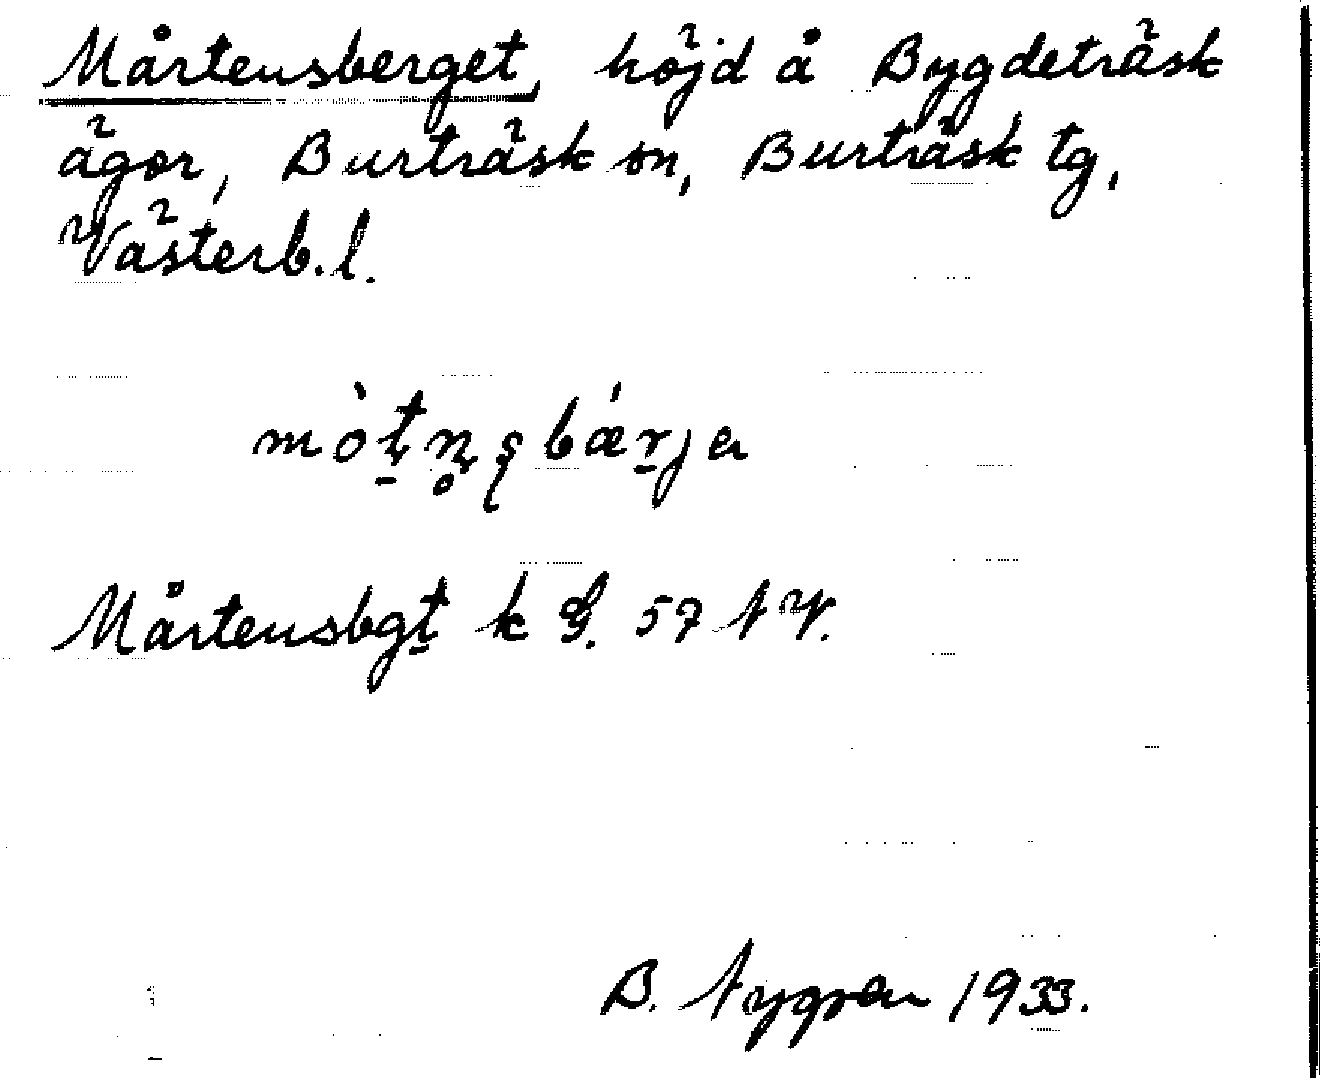 Mårtensberget, höjd å Bygdeträsk
ägor, Burträsk sn, Burträsk tg,
Västerb. l.
mòt̠n̥ʂbǽr̠ja
Mårtensbgt k G. 57 NV.
B. Nygren 1933.